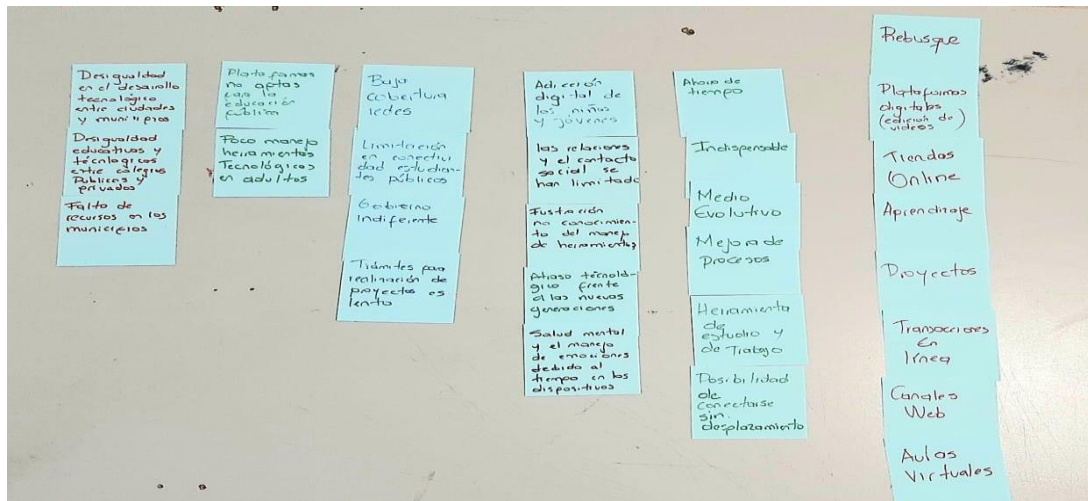 Desigualdad
en el desarollo
tecnológico
entre ciudades
y municipios
Desigualdad
educativas y
técnlogicos
entre colegios
Publicos y
privados
Falta de
recursos en los
municipios
Plataformas
no aptas
para la
educación
pública
Poco manejo
herramientas
Tecnológicas
en adultos
Baja
cobertura
redes
Limitación
en conectivi
dad estudian-
tes públicos
Gobierno
Indiferente
Trámites para
realización de
proyectos es
lento
Adicción
digital de
los niños
y jóvenes
las relaciones
y el contacto
social se
han limitado
Fustración
no conocimien-
to del manejo
de herramientas
Atraso tecnoló-
gico frente
a las nuevas
generaciones
Salud mental
y el manejo
de emociones
debido al
tiempo en los
dispositivos
Ahorro de
tiempo
Indispensable
Medio
Evolutivo
Mejora de
procesos
Herramienta
de
estudio y
de Trabajo
Posibilidad
de
conectarse
sin
desplazamiento
Rebusque
Plataformas
digitales
(edición de
videos)
Tiendas
Online
Aprendizaje
Proyectos
Transacciones
En
línea
Canales
Web
Aulas
Virtuales